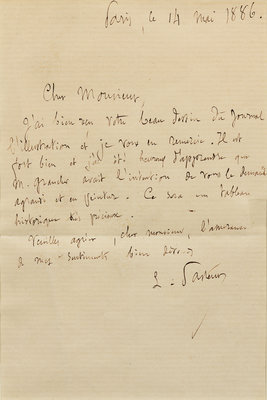 Paris, ce 14 mai 1886.
Cher Monsieur,
J'ai bien reçu votre beau dessin du Journal
l'illustration et je vous en remercie. Il est
fort bien et j'ai été heureux d'apprendre que
M. Grancher avait l'intention de vous le demander
agrandi et en peinture. Ce sera un tableau
historique très précieux.
Veuillez agréer, cher monsieur, l'assurance
de mes sentiments bien dévoués
L. Pasteur